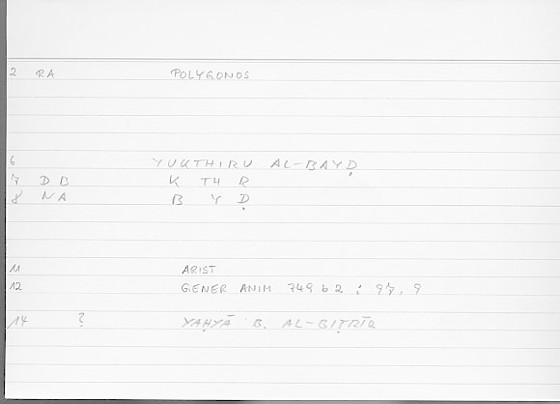 2 RA POLYGONOS
6 YUKTHIRU AL-BAYḌ
7 DB K TH R
8 NA B Y Ḍ
11 ARIST
12 GENER ANIM 749 b 2 : 97, 9
14 ? YAḤYĀ B. AL-BIṬRĪQ